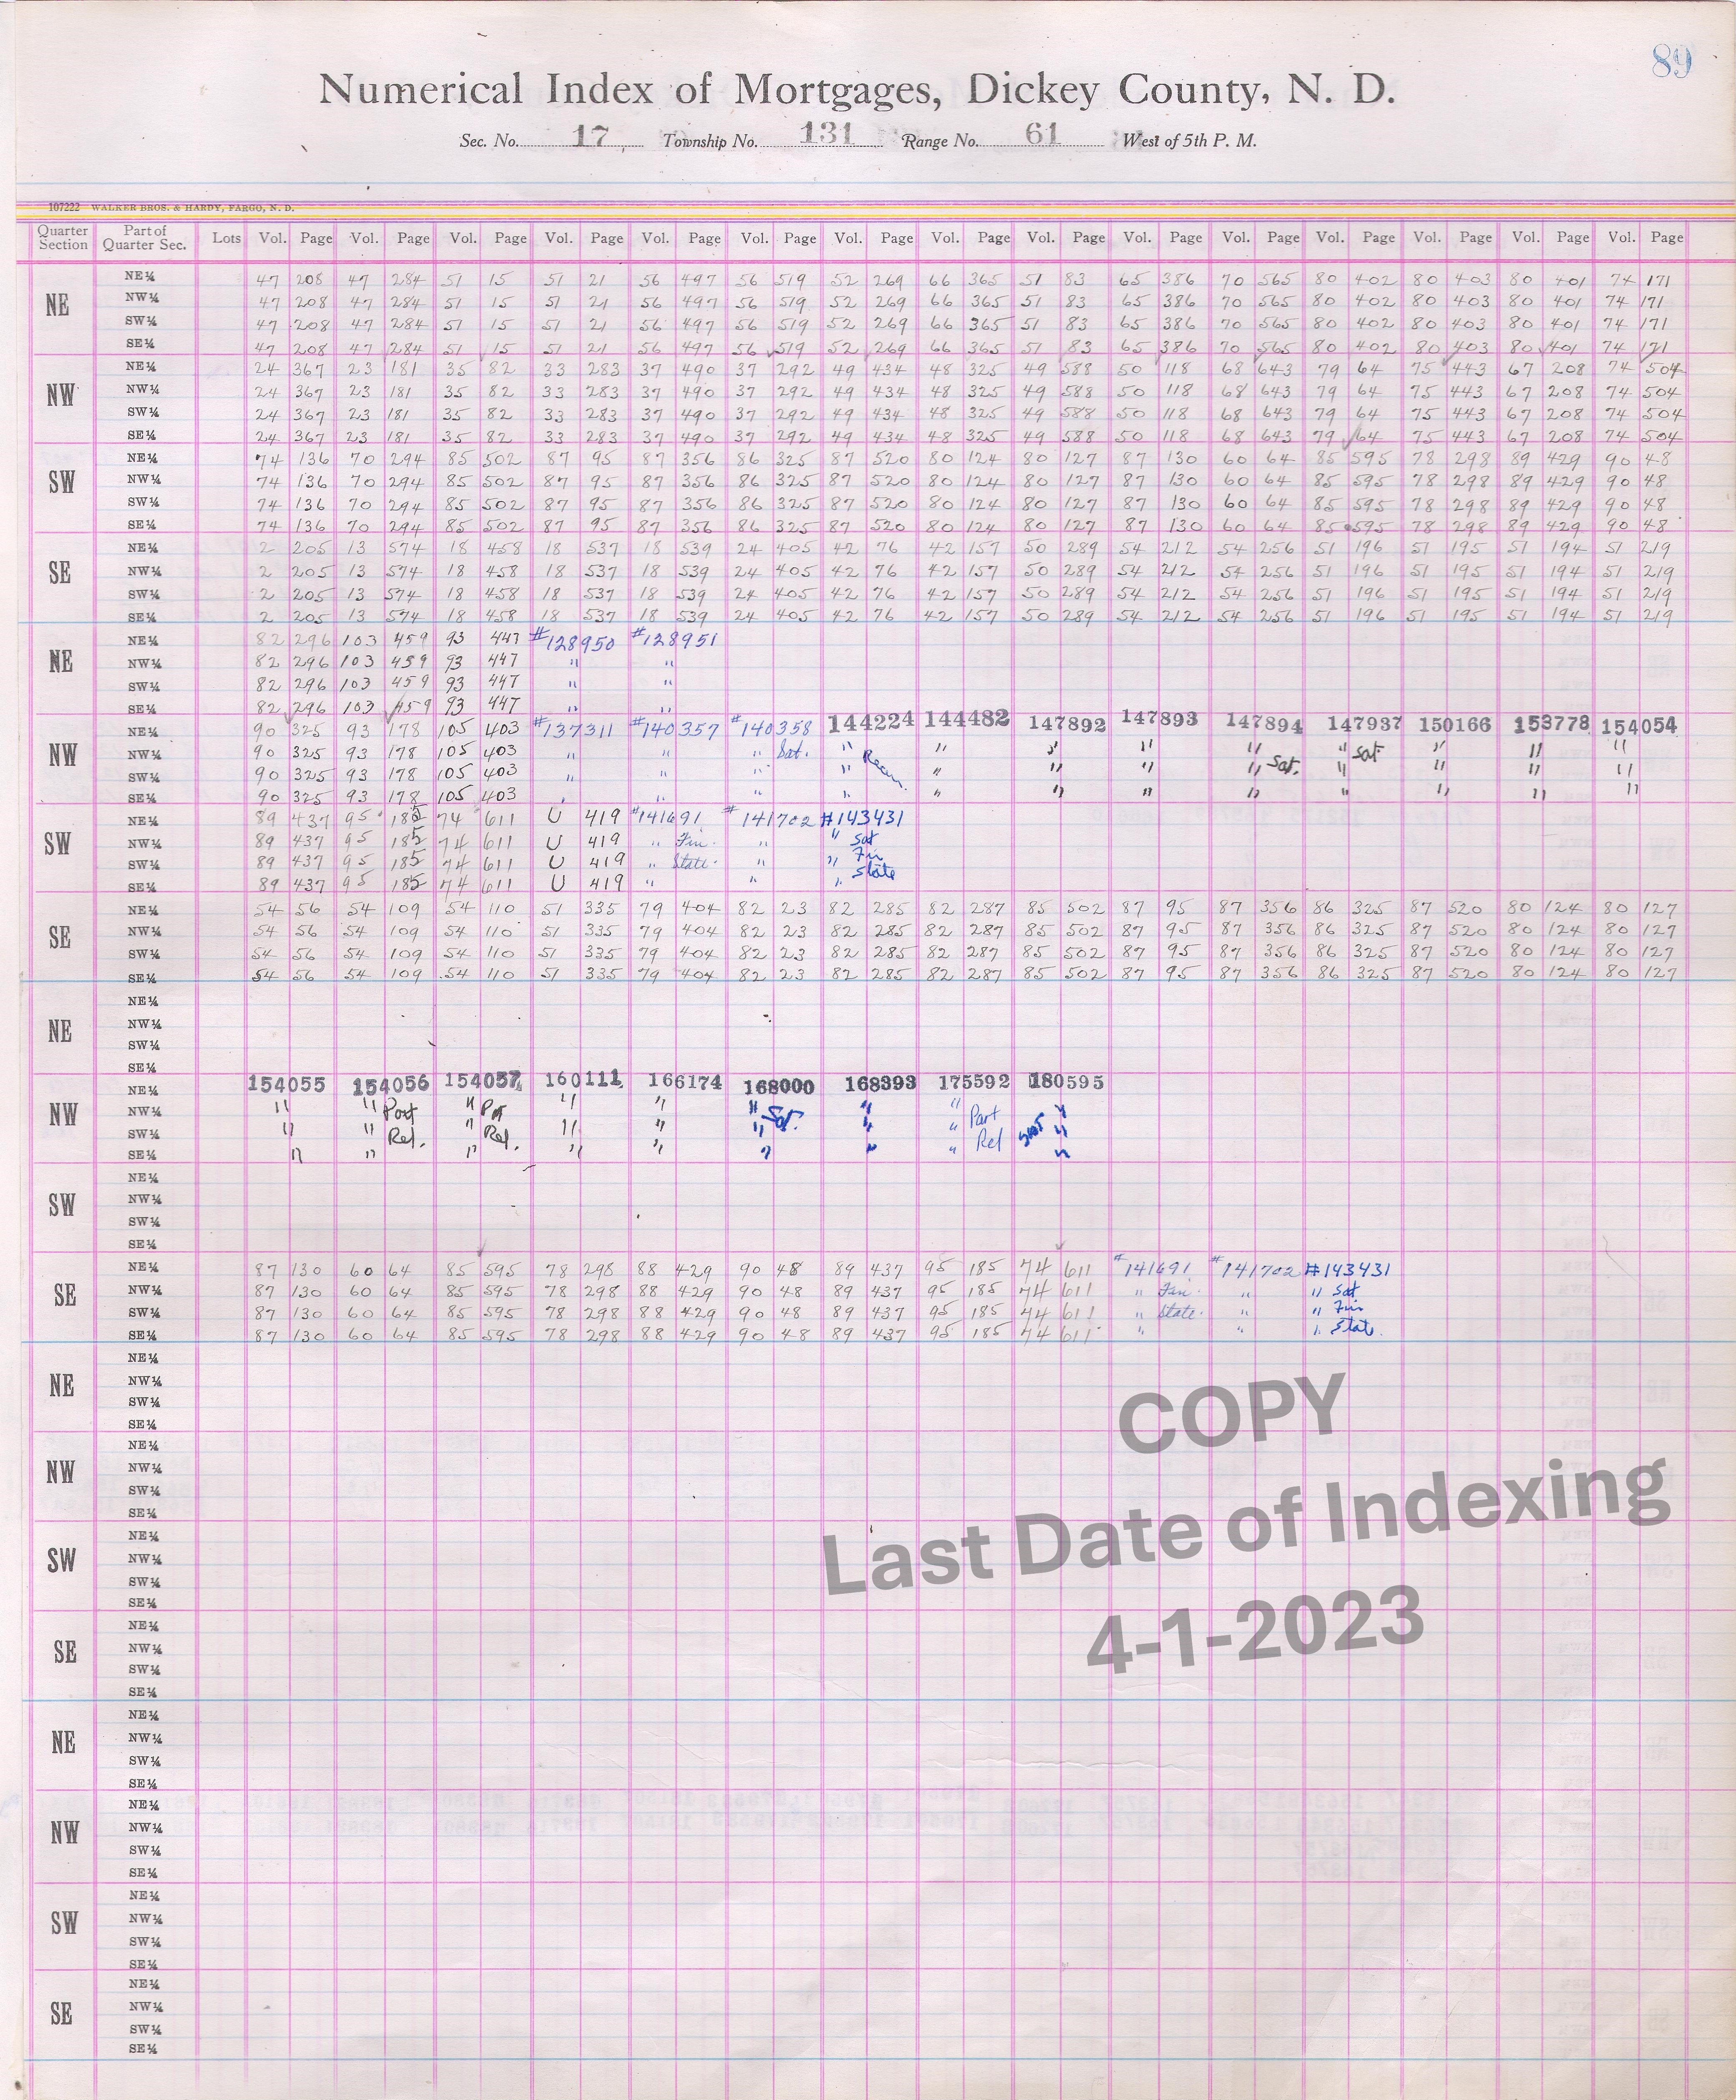 89
Numerical Index of Mortgages, Dickey County, N. D.
Sec. No. 17 Township No. 131 Range No. 61 West of 5th P. M.
107222 WALKER BROS. & HARDY, FARGO, N. D.
Quarter Section Part of Quarter Sec. Lots Vol. Page Vol. Page Vol. Page Vol. Page Vol. Page Vol. Page Vol. Page Vol. Page Vol. Page Vol. Page Vol. Page Vol. Page Vol. Page Vol. Page Vol. Page
NE
NE¼ 47 208 47 284 51 15 51 21 56 497 56 519 52 269 66 365 51 83 65 386 70 565 80 402 80 403 80 401 74 171
NW¼ 47 208 47 284 51 15 51 21 56 497 56 519 52 269 66 365 51 83 65 386 70 565 80 402 80 403 80 401 74 171
SW¼ 47 208 47 284 51 15 51 21 56 497 56 519 52 269 66 365 51 83 65 386 70 565 80 402 80 403 80 401 74 171
SE¼ 47 208 47 284 51 15 51 21 56 497 56 519 52 269 66 365 51 83 65 386 70 565 80 402 80 403 80 401 74 171
NW
NE¼ 24 367 23 181 35 82 33 283 37 490 37 292 49 434 48 325 49 588 50 118 68 643 79 64 75 443 67 208 74 504
NW¼ 24 367 23 181 35 82 33 283 37 490 37 292 49 434 48 325 49 588 50 118 68 643 79 64 75 443 67 208 74 504
SW¼ 24 367 23 181 35 82 33 283 37 490 37 292 49 434 48 325 49 588 50 118 68 643 79 64 75 443 67 208 74 504
SE¼ 24 367 23 181 35 82 33 283 37 490 37 292 49 434 48 325 49 588 50 118 68 643 79 64 75 443 67 208 74 504
SW
NE¼ 74 136 70 294 85 502 87 95 87 356 86 325 87 520 80 124 80 127 87 130 60 64 85 595 78 298 89 429 90 48
NW¼ 74 136 70 294 85 502 87 95 87 356 86 325 87 520 80 124 80 127 87 130 60 64 85 595 78 298 89 429 90 48
SW¼ 74 136 70 294 85 502 87 95 87 356 86 325 87 520 80 124 80 127 87 130 60 64 85 595 78 298 89 429 90 48
SE¼ 74 136 70 294 85 502 87 95 87 356 86 325 87 520 80 124 80 127 87 130 60 64 85 595 78 298 89 429 90 48
SE
NE¼ 2 205 13 574 18 458 18 537 18 539 24 405 42 76 42 157 50 289 54 212 54 256 51 196 51 195 51 194 51 219
NW¼ 2 205 13 574 18 458 18 537 18 539 24 405 42 76 42 157 50 289 54 212 54 256 51 196 51 195 51 194 51 219
SW¼ 2 205 13 574 18 458 18 537 18 539 24 405 42 76 42 157 50 289 54 212 54 256 51 196 51 195 51 194 51 219
SE¼ 2 205 13 574 18 458 18 537 18 539 24 405 42 76 42 157 50 289 54 212 54 256 51 196 51 195 51 194 51 219
NE
NE¼ 82 296 103 459 93 447 #128950 #128951
NW¼ 82 296 103 459 93 447 " "
SW¼ 82 296 103 459 93 447 " "
SE¼ 82 296 103 459 93 447 " "
NW
NE¼ 90 325 93 178 105 403 #137311 #140357 #140358 144224 144482 147892 147893 147894 147937 150166 153778 154054
NW¼ 90 325 93 178 105 403 " " " Sat. " " " " " " Sat " " "
SW¼ 90 325 93 178 105 403 " " " " " " " " Sat. " " " "
SE¼ 90 325 93 178 105 403 " " " " " " " " " " " "
SW
NE¼ 89 437 95 185 74 611 U 419 #141691 #141702 #143431
NW¼ 89 437 95 185 74 611 U 419 " Fin. " " Sat
SW¼ 89 437 95 185 74 611 U 419 " State. " " Fin
SE¼ 89 437 95 185 74 611 U 419 " " " State
SE
NE¼ 54 56 54 109 54 110 51 335 79 404 82 23 82 285 82 287 85 502 87 95 87 356 86 325 87 520 80 124 80 127
NW¼ 54 56 54 109 54 110 51 335 79 404 82 23 82 285 82 287 85 502 87 95 87 356 86 325 87 520 80 124 80 127
SW¼ 54 56 54 109 54 110 51 335 79 404 82 23 82 285 82 287 85 502 87 95 87 356 86 325 87 520 80 124 80 127
SE¼ 54 56 54 109 54 110 51 335 79 404 82 23 82 285 82 287 85 502 87 95 87 356 86 325 87 520 80 124 80 127
NE
NE¼
NW¼
SW¼
SE¼
NW
NE¼ 154055 154056 154057 160111 166174 168000 168393 175592 180595
NW¼ " " Part " Prt " " " Sat. " " Part "
SW¼ " " Rel. " Rel. " " " " " Rel "
SE¼ " " " " " " " " "
SW
NE¼
NW¼
SW¼
SE¼
SE
NE¼ 87 130 60 64 85 595 78 298 88 429 90 48 89 437 95 185 74 611 #141691 #141702 #143431
NW¼ 87 130 60 64 85 595 78 298 88 429 90 48 89 437 95 185 74 611 " Fin. " " Sat
SW¼ 87 130 60 64 85 595 78 298 88 429 90 48 89 437 95 185 74 611 " State. " " Fin
SE¼ 87 130 60 64 85 595 78 298 88 429 90 48 89 437 95 185 74 611 " " " State.
NE
NE¼
NW¼
SW¼
SE¼
NW
NE¼
NW¼
SW¼
SE¼
SW
NE¼
NW¼
SW¼
SE¼
SE
NE¼
NW¼
SW¼
SE¼
COPY
Last Date of Indexing
4-1-2023
NE
NE¼
NW¼
SW¼
SE¼
NW
NE¼
NW¼
SW¼
SE¼
SW
NE¼
NW¼
SW¼
SE¼
SE
NE¼
NW¼
SW¼
SE¼